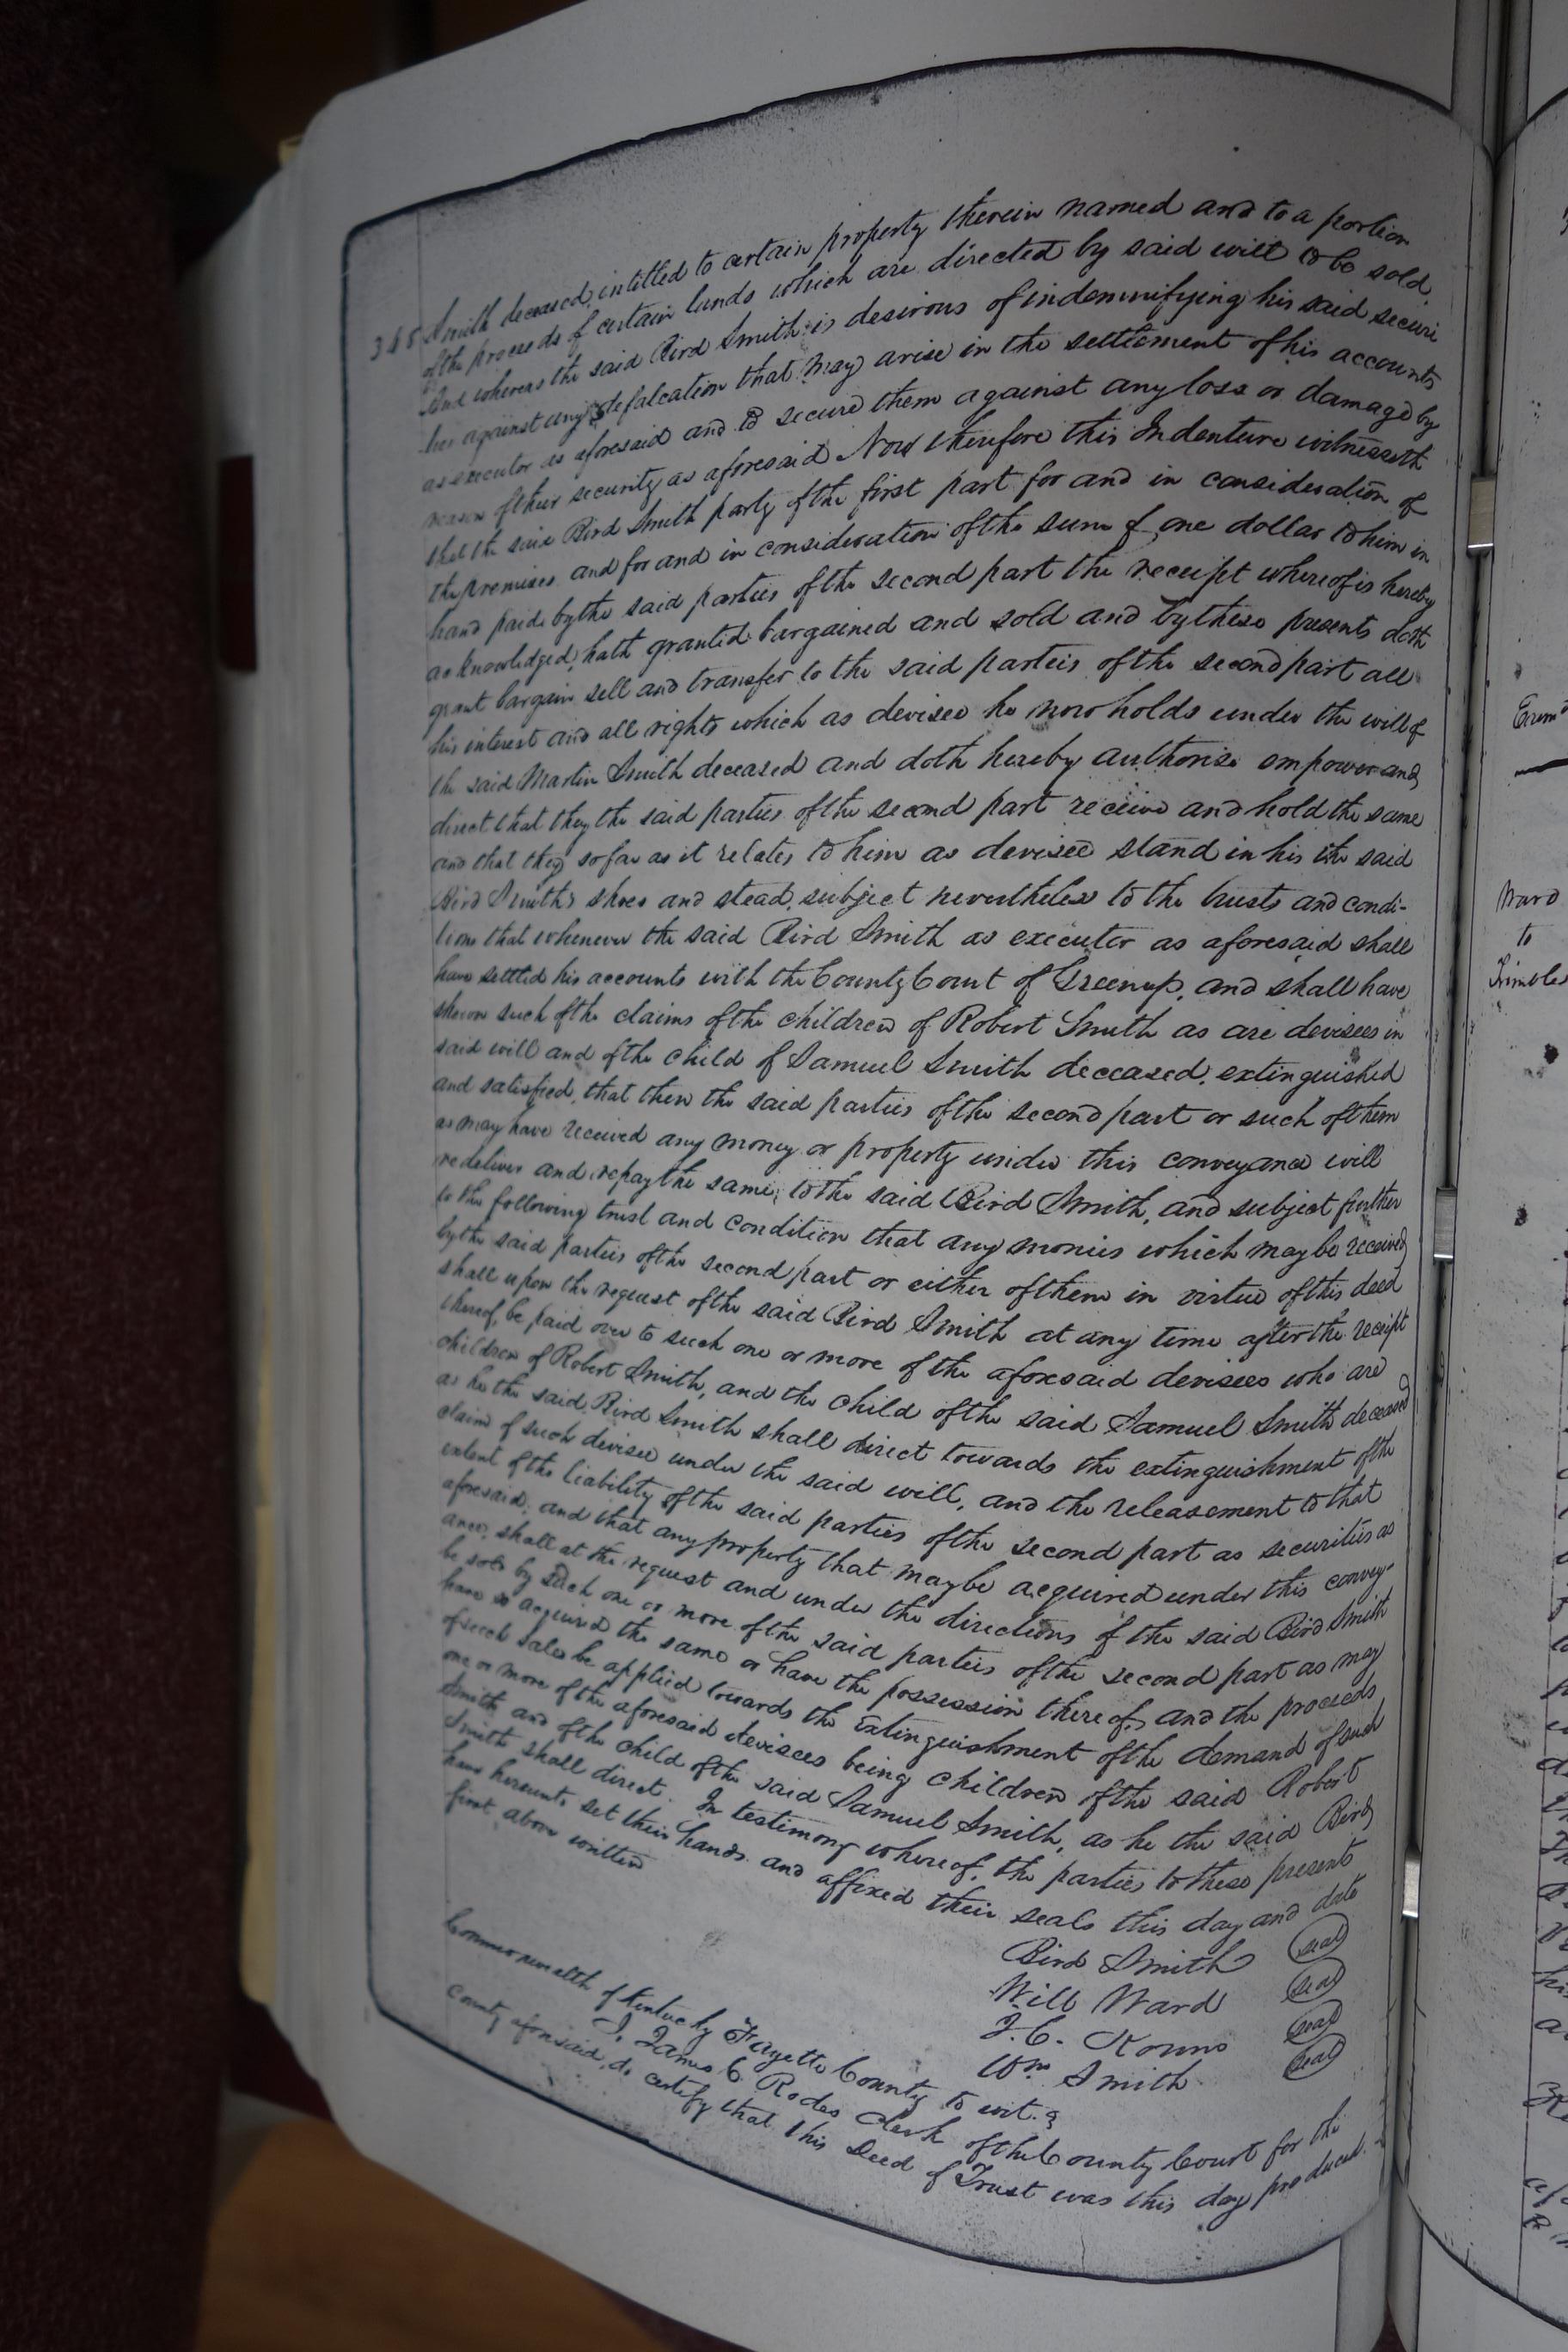 Smith deceased, intitled to certain property therein named and to a portion
of the proceeds of certain lands which are directed by said will to be sold.
And whereas the said Bird Smith is desirous of indemnifying his said securi
ties against any defalcation that may arise in the settlement of his accounts
as executor as aforesaid and to secure them against any loss or damage by
reason of their security as aforesaid Now therefore this Indenture witnesseth
that the said Bird Smith party of the first part for and in consideration of
the premises and for and in consideration of the sum of one dollar to him in
hand paid by the said parties of the second part the receipt whereof is hereby
acknowledged, hath granted bargained and sold and by these presents doth
grant bargain sell and transfer to the said parties of the second part all
his interest and all rights which as devisee he now holds under the will of
the said Martin Smith deceased and doth hereby authorise empower and
direct that they the said parties of the second part receive and hold the same
and that they so far as it relates to him as devisee stand in his the said
Bird Smith's shoes and stead, subject nevertheless to the trusts and condi-
tions that whenever the said Bird Smith as executor as aforesaid shall
have settled his accounts with the County Court of Greenup, and shall have
shewn such of the claims of the children of Robert Smith as are devisees in
said will and of the child of Samuel Smith deceased, extinguished
and satisfied, that then the said parties of the second part or such of them
as may have received any money or property under this conveyance will
redeliver and repay the same, to the said Bird Smith, and subject further
to the following trust and condition that any monies which may be received
by the said parties of the second part or either of them in virtue of this deed
shall upon the request of the said Bird Smith at any time after the receipt
thereof, be paid over to such one or more of the aforesaid devisees who are
children of Robert Smith, and the child of the said Samuel Smith deceased
as he the said Bird Smith shall direct towards the extinguishment of the
claim of such devisee under the said will, and the releasement to that
extent of the liability of the said parties of the second part as securities as
aforesaid, and that any property that may be acquired under this convey-
ance, shall at the request and under the directions of the said Bird Smith
be sold by such one or more of the said parties of the second part as may
have so acquired the same or have the possession thereof, and the proceeds
of such sales be applied towards the extinguishment of the demand of such
one or more of the aforesaid devisees being children of the said Robert
Smith and of the child of the said Samuel Smith, as he the said Bird
Smith shall direct. In testimony whereof, the parties to these presents
have hereunto set their hands and affixed their seals this day and date
first above written
Bird Smith seal
Will Ward seal
J. C. Kouns seal
Wm Smith seal
Commonwealth of Kentucky Fayette County to wit.
I, James C. Rodes Clerk of the County Court for the
County aforesaid, do certify that this Deed of Trust was this day produced
Ward
to
Trimble